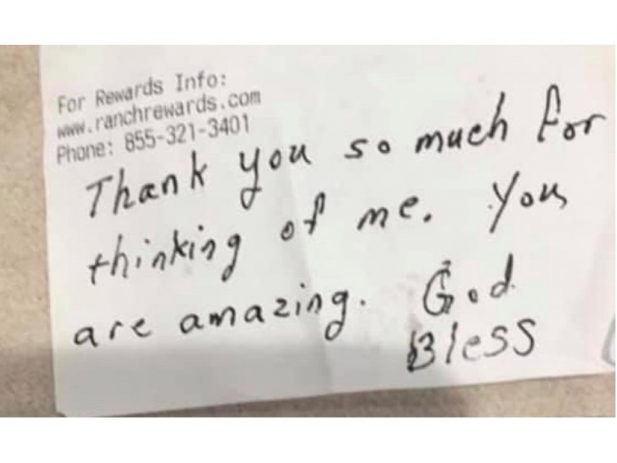 For Rewards Info:
www.ranchrewards.com
Phone: 855-321-3401
Thank you so much for
thinking of me. You
are amazing. God
Bless